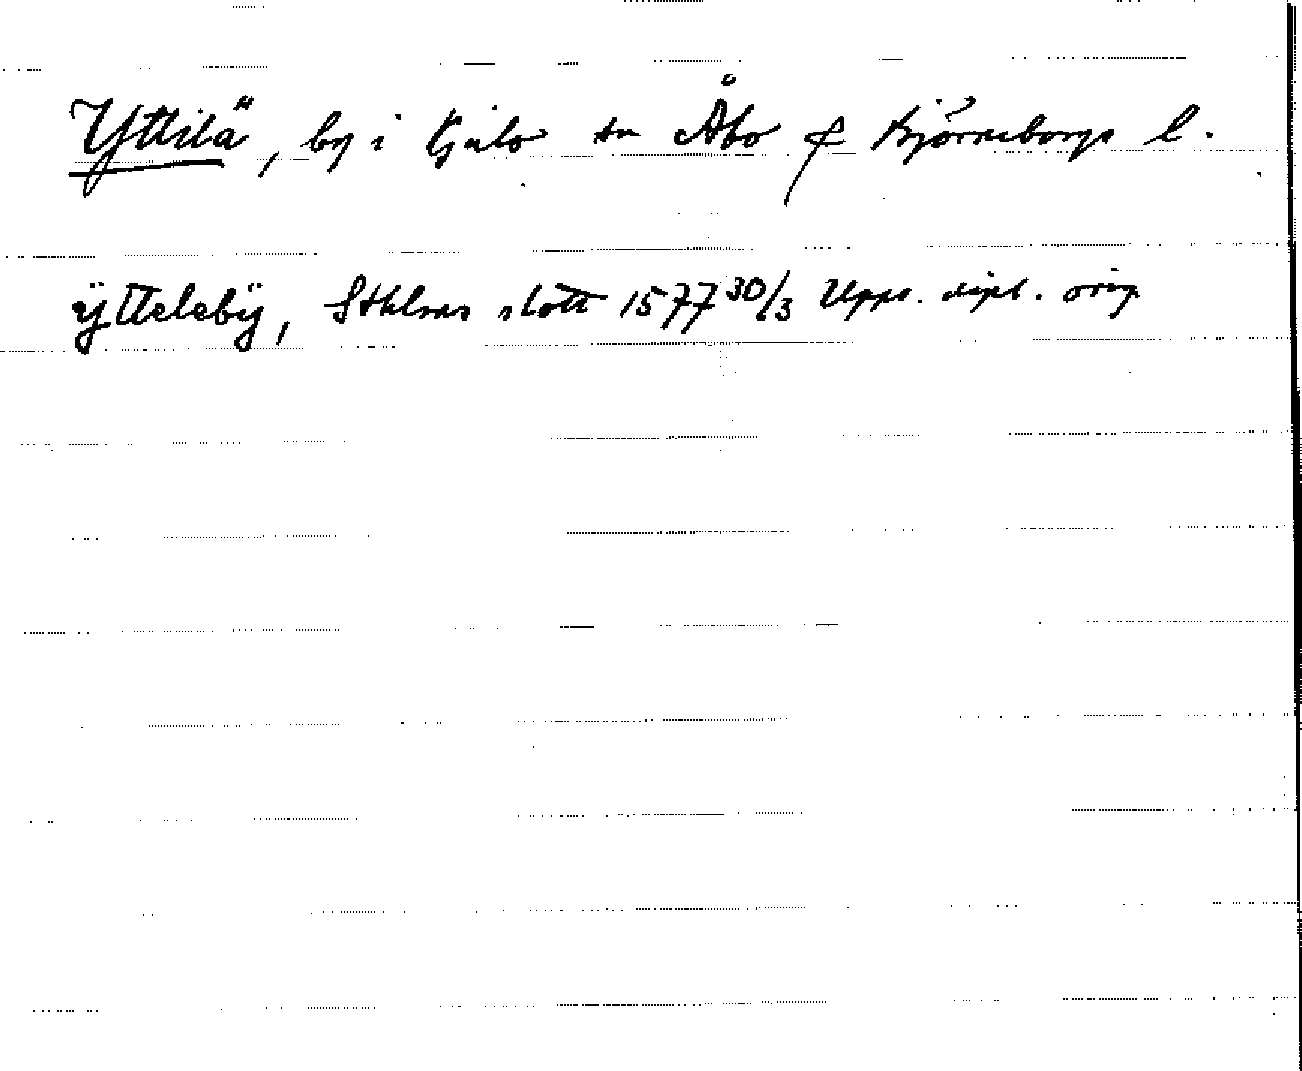 Yttilä, by i Kjulo sn Åbo & Björneborgs l.
ÿttelebÿ, Sthlms slott 1577 30/3 Upps. dipl. orig